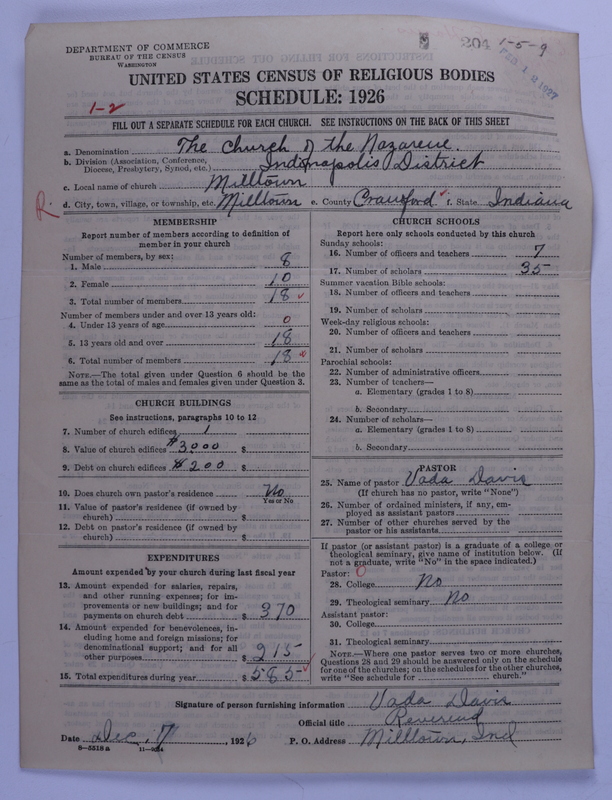 204 1-5-9
FEB 12 1927
DEPARTMENT OF COMMERCE
BUREAU OF THE CENSUS
WASHINGTON
UNITED STATES CENSUS OF RELIGIOUS BODIES
SCHEDULE: 1926
1-2
FILL OUT A SEPARATE SCHEDULE FOR EACH CHURCH. SEE INSTRUCTIONS ON THE BACK OF THIS SHEET
a. Denomination The Church of the Nazarene.
b. Division (Association, Conference,
Diocese, Presbytery, Synod, etc.) Indianapolis District
c. Local name of church Milltown
R. d. City, town, village, or township, etc. Milltown e. County Crawford f. State Indiana
MEMBERSHIP
Report number of members according to definition of
member in your church
Number of members, by sex:
1. Male 8
2. Female 10
3. Total number of members 18
Number of members under and over 13 years old:
4. Under 13 years of age 0
5. 13 years old and over 18
6. Total number of members 18
NOTE.—The total given under Question 6 should be
the same as the total of males and females given under Question 3.
CHURCH BUILDINGS
See instructions, paragraphs 10 to 12
7. Number of church edifices 1
8. Value of church edifices $3,000 $
9. Debt on church edifices $200 $
10. Does church own pastor's residence No
Yes or No
11. Value of pastor's residence (if owned by
church) $
12. Debt on pastor's residence (if owned by
church) $
EXPENDITURES
Amount expended by your church during last fiscal year
13. Amount expended for salaries, repairs,
and other running expenses; for im-
provements or new buildings; and for
payments on church debt $ 370
14. Amount expended for benevolences, in-
cluding home and foreign missions; for
denominational support; and for all
other purposes $ 215
15. Total expenditures during year $ 585
CHURCH SCHOOLS
Report here only schools conducted by this church
Sunday schools:
16. Number of officers and teachers 7
17. Number of scholars 35
Summer vacation Bible schools:
18. Number of officers and teachers
19. Number of scholars
Week-day religious schools:
20. Number of officers and teachers
21. Number of scholars
Parochial schools:
22. Number of administrative officers
23. Number of teachers—
a. Elementary (grades 1 to 8)
b. Secondary
24. Number of scholars—
a. Elementary (grades 1 to 8)
b. Secondary
PASTOR
25. Name of pastor Vada Davis
(If church has no pastor, write "None")
26. Number of ordained ministers, if any, em-
ployed as assistant pastors
27. Number of other churches served by the
pastor or his assistants
If pastor (or assistant pastor) is a graduate of a college or
theological seminary, give name of institution below. (If
not a graduate, write "No" in the space indicated.)
Pastor: 0
28. College No
29. Theological seminary No
Assistant pastor:
30. College
31. Theological seminary
NOTE.—Where one pastor serves two or more churches,
Questions 28 and 29 should be answered only on the schedule
for one of the churches; on the schedules for the other churches,
write "See schedule for church."
Signature of person furnishing information Vada Davis
Official title Reverend
Date Dec, 7, 1926 P. O. Address Milltown, Ind
8-5518a